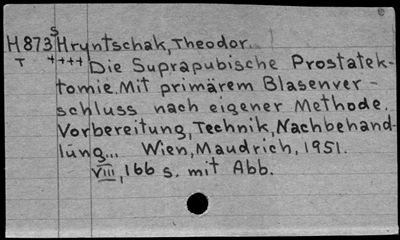 H873s Hryntschak, Theodor.
T ++++ Die Suprapubische Prostatek-
tomie. Mit primärem Blasenver-
schluss nach eigener Methode.
Vorbereitung, Technik, Nachbehand-
lung... Wien, Maudrich, 1951.
VIII, 166 s. mit Abb.